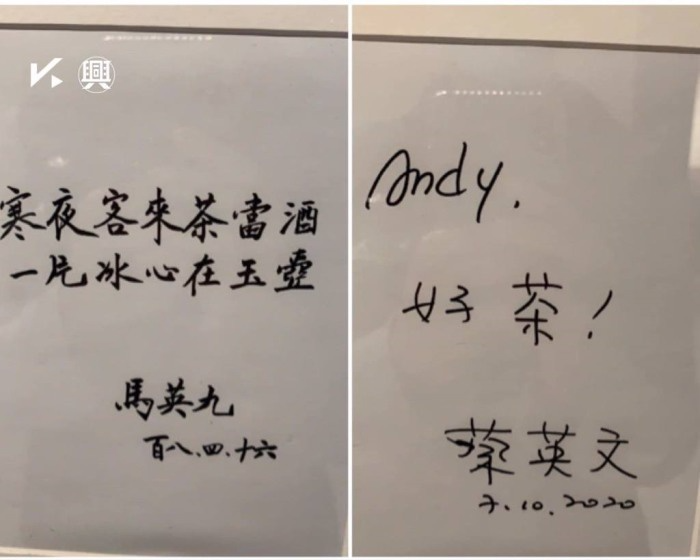 興
寒夜客來茶當酒
一片冰心在玉壺
馬英九
百八.四.十六
Andy.
好茶!
蔡英文
7.10.2020